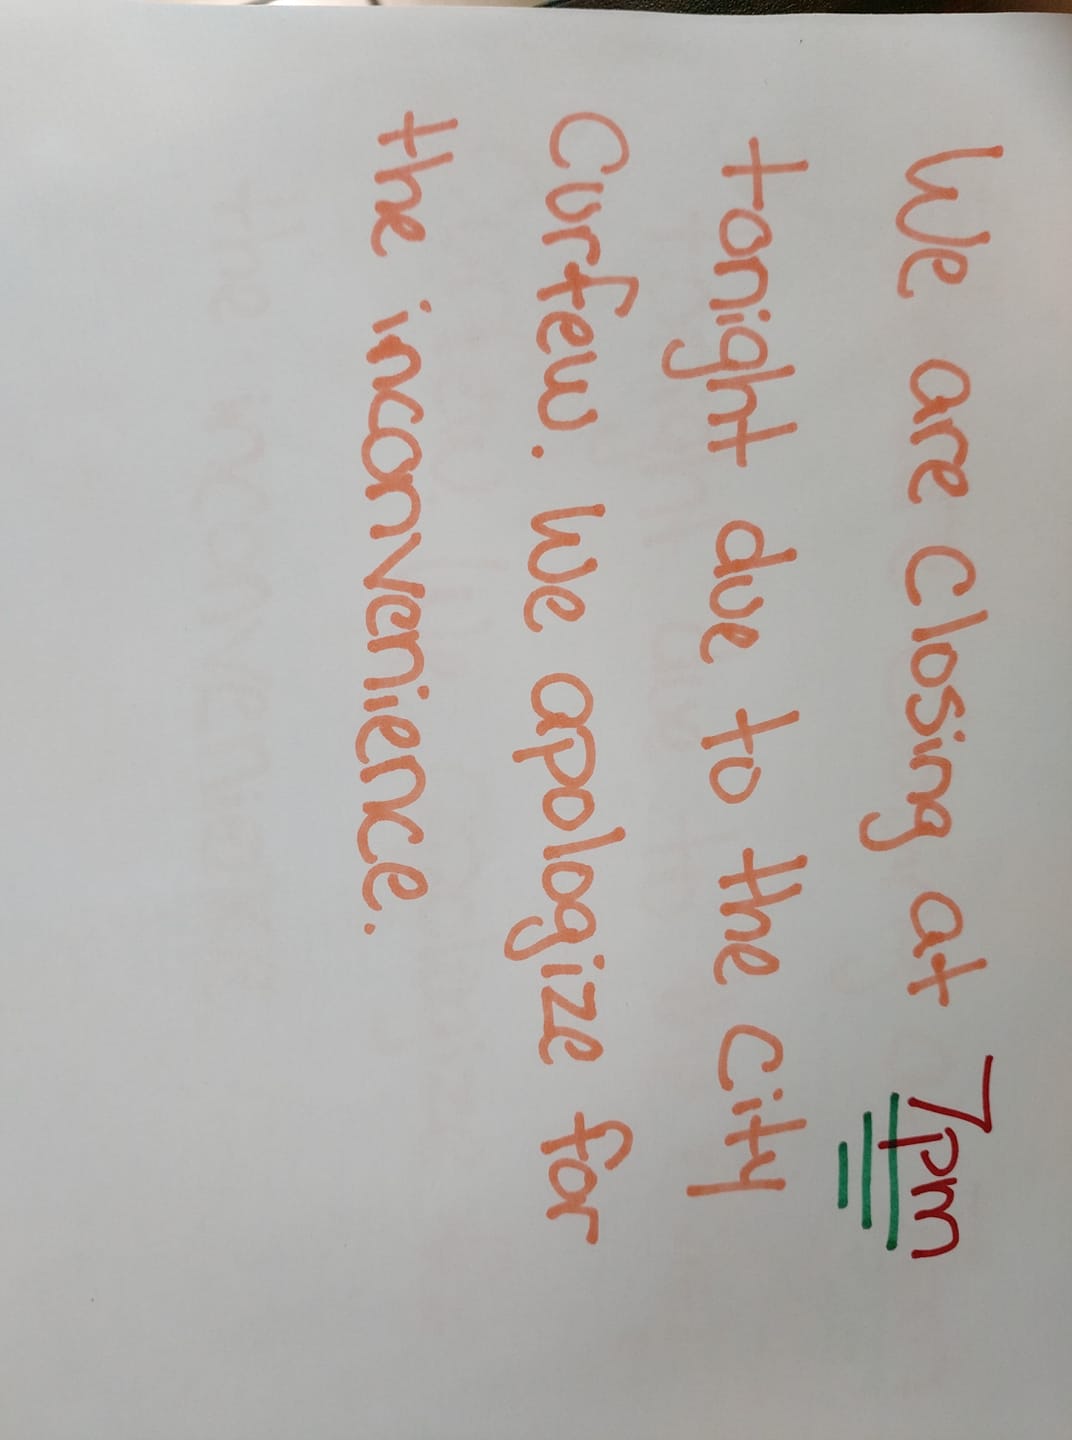 We are closing at 7pm
tonight due to the city
Curfew. We apologize for
the inconvenience.